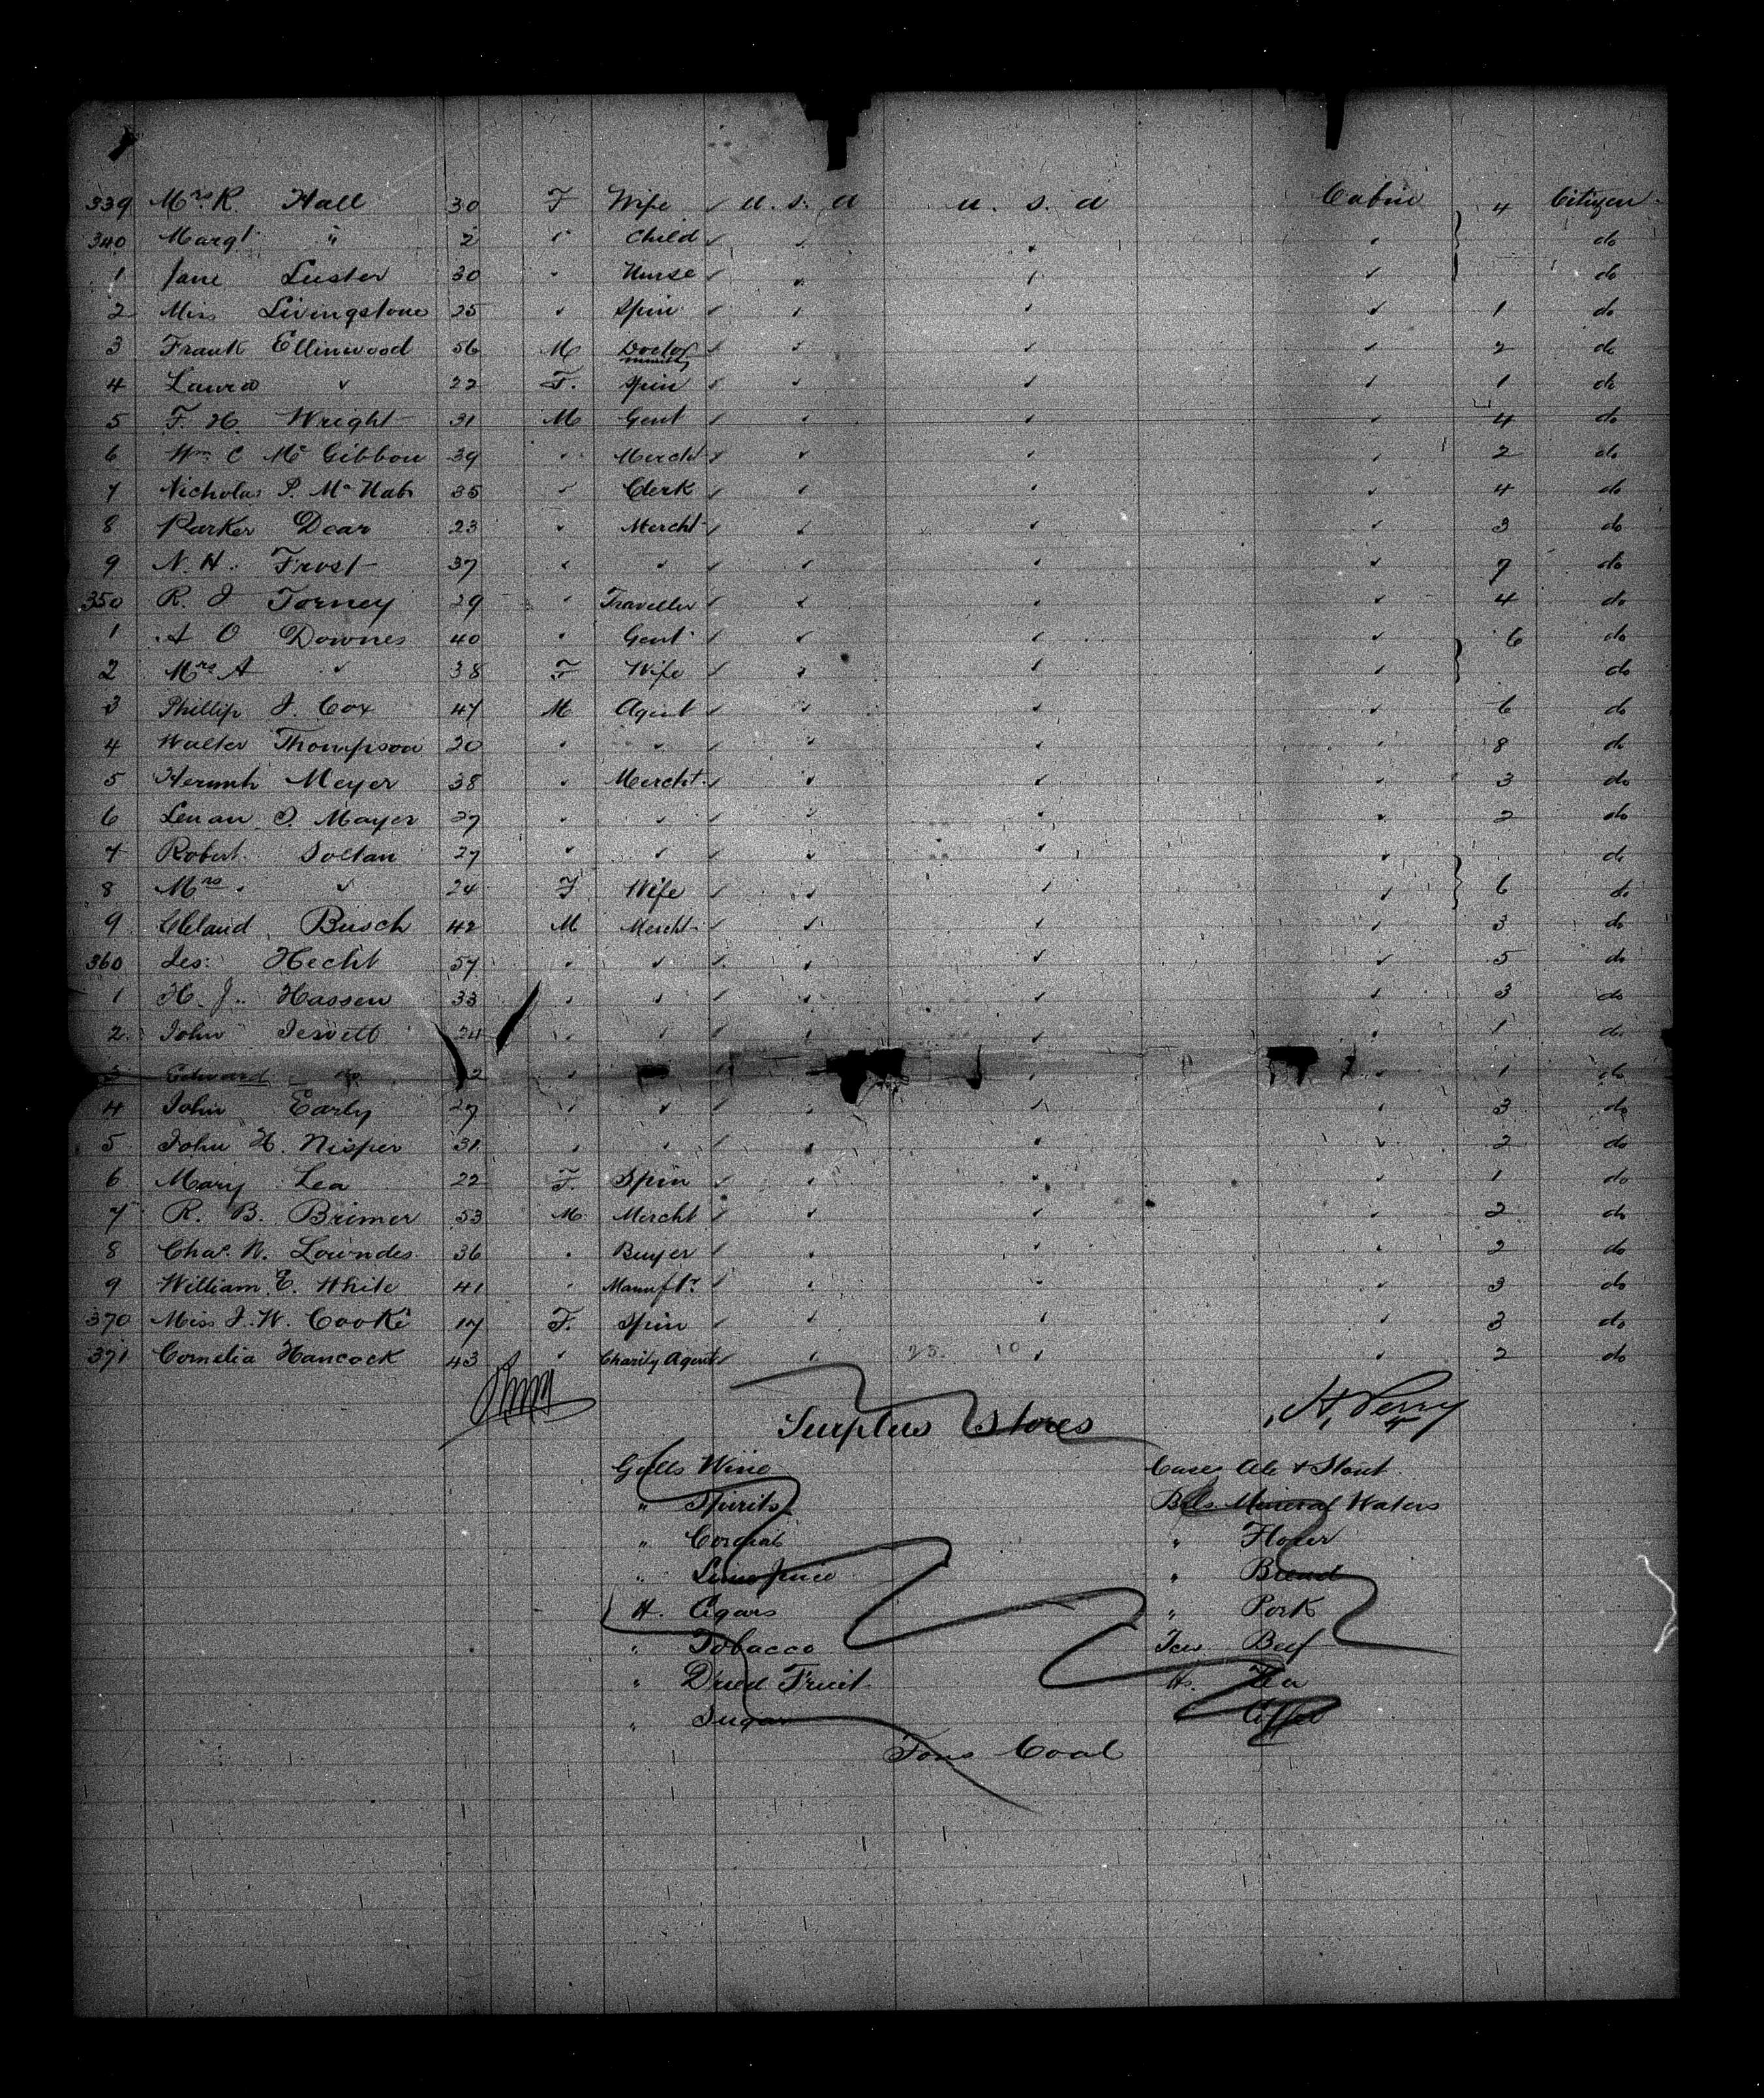 339 Mrs. R. Hall 30 F Wife ✓ U. S. A U. S. A Cabin 4 Citizen
340 Margt " 2 " Child ✓ ✓ ✓ ✓ do
1 Jane Luster 30 " Nurse ✓ ✓ ✓ ✓ do
2 Miss Livingstone 25 ✓ Spin ✓ ✓ ✓ ✓ 1 do
3 Frank Ellinwood 56 M Doctor ✓ ✓ ✓ ✓ 2 do
4 Laura ✓ 22 F. Spin ✓ ✓ ✓ ✓ 1 do
5 F. H. Wright 31 M Gent ✓ ✓ ✓ ✓ 4 do
6 Wm C McGibbon 39 " Mercht ✓ ✓ ✓ ✓ 2 do
7 Nicholas P. McNab 35 ✓ Clerk ✓ ✓ ✓ ✓ 4 do
8 Parker Dear 23 ✓ Mercht ✓ ✓ ✓ ✓ 3 do
9 N. H. Frost 37 ✓ ✓ ✓ ✓ ✓ ✓ 7 do
350 R. J Torney 29 " Traveller ✓ ✓ ✓ ✓ 4 do
1 A O Downes 40 " Gent ✓ ✓ ✓ ✓ 6 do
2 Mrs A ✓ 38 F Wife ✓ ✓ ✓ ✓ do
3 Phillip J. Cox 47 M Agent ✓ ✓ ✓ ✓ 6 do
4 Walter Thompson 20 ✓ ✓ ✓ ✓ ✓ ✓ 8 do
5 Hermh Meyer 38 ✓ Mercht. ✓ ✓ ✓ ✓ 3 do
6 Leman S. Mayer 27 ✓ ✓ ✓ ✓ ✓ ✓ 2 do
7 Robert Soltan 27 ✓ ✓ ✓ ✓ ✓ ✓ do
8 Mrs. ✓ 24 F Wife ✓ ✓ ✓ ✓ 6 do
9 Cleland Busch 42 M Mercht ✓ ✓ ✓ ✓ 3 do
360 Les: Hecht 57 ✓ ✓ ✓ ✓ ✓ ✓ 5 do
1 H. J. Hassen 33 ✓ ✓ ✓ ✓ ✓ ✓ 3 do
2 John 24 ✓ ✓ ✓ ✓ ✓ ✓ 1 do
3 Edward do ✓ ✓ ✓ ✓ 1 do
4 John Early 27 ✓ ✓ ✓ ✓ ✓ ✓ 3 do
5 John H. Nisper 31 ✓ ✓ ✓ ✓ ✓ ✓ 2 do
6 Mary Lea 22 F. Spin ✓ ✓ ✓ ✓ 1 do
7 R. B. Brimer 53 M Mercht ✓ ✓ ✓ ✓ 2 do
8 Chas. N. Lowndes 36 " Buyer ✓ ✓ ✓ ✓ 2 do
9 William E. White 41 " Manuftr. ✓ ✓ ✓ ✓ 3 do
370 Miss J. W. Cooke 17 F. Spin ✓ ✓ ✓ ✓ 3 do
371 Cornelia Hancock 43 ✓ Charity Agent ✓ ✓ 25. 10 ✓ ✓ 2 do
H. Perry
Surplus Stores
Galls Wine Cases Ale & Stout
" Spirits Bls Mineral Waters
" Cordials " Flour
" Lime Juice " Bread
lt. Cigars " Pork
" Tobacco Tcs Beef
" Dried Fruit lbs. Tea
" Sugar " Coffee
Tons Coal